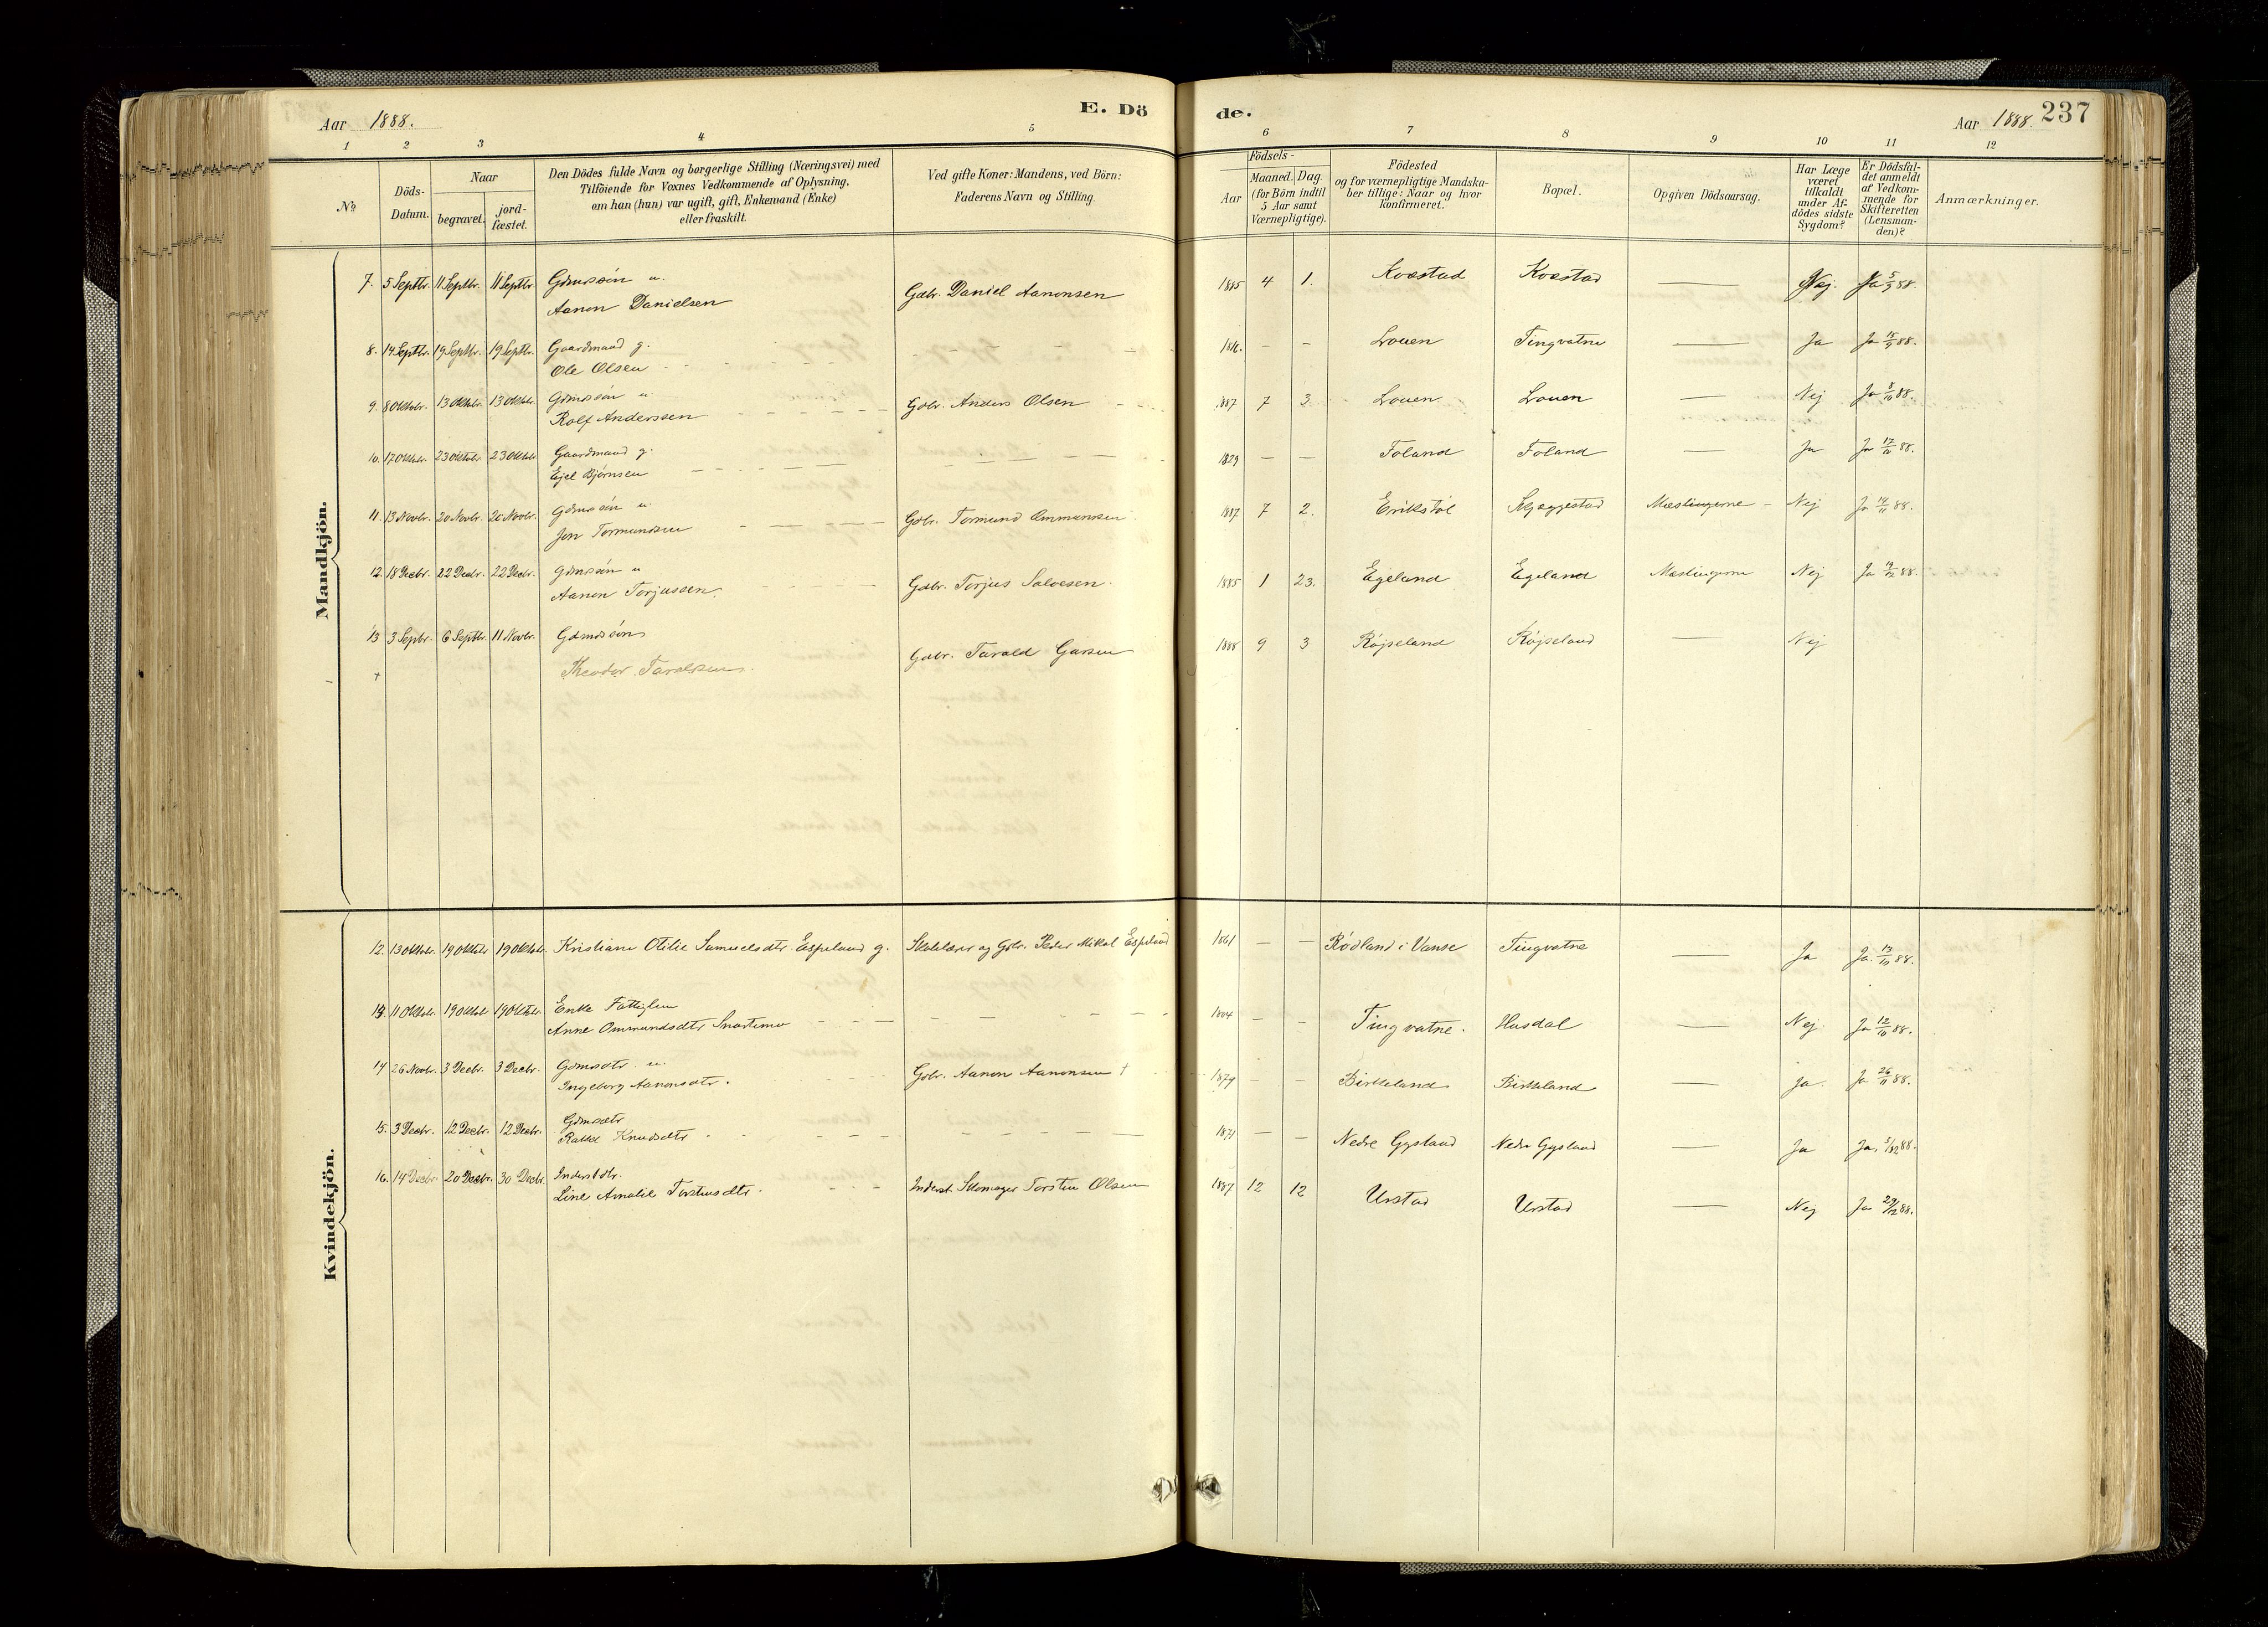 Aar 1888.
E. Dö
de.
Aar 1888. 237
1 2 3 4 5 6 7 8 9 10 11 12
No
Döds-
Datum.
Naar
begravet.
jord-
fæstet.
Den Dödes fulde Navn og borgerlige Stilling (Næringsvei) med
Tilföiende for Voxnes Vedkommende af Oplysning,
om han (hun) var ugift, gift, Enkemand (Enke)
eller fraskilt.
Ved gifte Koner: Mandens, ved Börn:
Faderens Navn og Stilling.
Födsels-
Aar
Maaned. Dag.
(for Börn indtil
5 Aar samt
Værnepligtige).
Födested
og for værnepligtige Mandska-
ber tillige: Naar og hvor
konfirmeret.
Bopæl.
Opgiven Dödsaarsag.
Har Læge
været
tilkaldt
under Af-
dödes sidste
Sygdom?
Er Dödsfal-
det anmeldt
af Vedkom-
mende for
Skifteretten
(Lensman-
den)?
Anmærkninger.
Mandkjön.
7. 5 Septbr. 11 Septbr. 11 Septbr. Gdmssön u.
Aanon Danielsen Gdbr. Daniel Aanonsen 1885 4 1. Kvæstad Kvæstad — Nej. Ja 5/9 88.
8. 14 Septbr. 19 Septbr. 19 Septbr. Gaardmand g.
Ole Olsen 1816. — — Louen Tingvatne — Ja Ja 15/9 88.
9. 8 Oktobr. 13 Oktobr. 13 Oktobr. Gdmssön u
Rolf Anderssen Gdbr. Anders Olsen 1887 7 3 Louen Louen — Nej Ja 8/10 88.
10. 17 Oktobr. 23 Oktobr. 23 Oktobr. Gaardmand g.
Ejel Bjørnsen 1829 — — Foland Foland — Ja Ja 17/10 88.
11. 13 Novbr. 20 Novbr. 20 Novbr. Gdmssön u.
Jon Tormundsen Gdbr. Tormund Ommunsen 1887 7 2. Erikstöl Skjeggestad Mæslingerne — Nej Ja 14/11 88.
12. 18 Decbr. 22 Decbr. 22 Decbr. Gdmssön u
Aanon Torjussen. Gdbr. Torjus Salvesen. 1885 1 23. Egeland Egeland Mæslingerne Nej Ja 19/12 88.
13 3 Septbr. 6 Septbr. 11 Novbr. Gdmssön
Theodor Taraldsen. Gdbr. Tarald Garsen 1888 9 3 Röjseland Röjseland — Nej
Kvindekjön.
12. 13 Oktobr. 19 Oktobr. 19 Oktobr. Kristiane Otilie Samuelsdtr. Espeland g. Skolelærer og Gdbr. Peder Mikal Espeland 1861 — — Rödland i Vanse Tingvatne — Ja Ja. 13/10 88.
13. 11 Oktobr. 19 Oktobr. 19 Oktobr. Enke Fattiglem
Anne Ommundsdtr Snartemo 1804 — — Tingvatne. Husdal — Nej Ja 12/10 88.
14 26 Novbr. 3 Decbr. 3 Decbr. Gdmsdtr. u.
Ingeborg Aanonsdtr. Gdbr. Aanon Aanonsen † 1879 — — Birkeland Birkeland — Ja. Ja 26/11 88.
15. 3 Decbr. 12 Decbr. 12 Decbr. Gdmsdtr
Rakel Knudsdtr 1871 — — Nedre Gysland Nedre Gysland — Ja Ja, 5/12 88.
16. 14 Decbr. 20 Decbr. 30 Decbr. Inderstdtr.
Line Amalie Torstensdtr. Inderst. Skomager Torsten Olsen 1887 12 12 Urstad Urstad — Nej Ja 29/12 88.